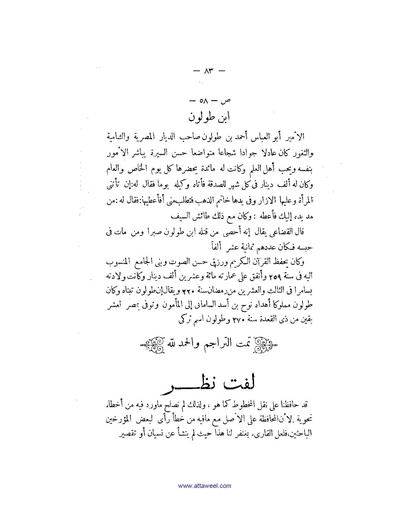 — ٨٣ —
ص — ٥٨
ابن طولون
الأمير أبو العباس أحمد بن طولون صاحب الديار المصرية والشامية
والثغور كان عادلا جوادا شجاعا متواضعا حسن السيرة يباشر الأمور
بنفسه ويحب أهل العلم وكانت له مائدة يحضرها كل يوم الخاص والعام
وكان له ألف دينار فى كل شهر للصدقة فأتاه وكيله يوما فقال له: إن تأتى
المرأة وعليها الازار وفى يدها خاتم الذهب فتطلب منى أفأعطيها؟ فقال له: من
مد يده إليك فأعطه: وكان مع ذلك طائش السيف
قال القضاعى يقال إنه أحصى من قتله ابن طولون صبرا ومن مات فى
حبسه فكان عددهم ثمانية عشر ألفاً
وكان يحفظ القرآن الكريم ورزق حسن الصوت وبنى الجامع المنسوب
اليه فى سنة ٢٥٩ وأنفق على عمارته مائة وعشرين ألف دينار وكانت ولادته
بسامرا فى الثالث والعشرين من رمضان سنة ٢٢٠ ويقال إن طولون تبناه وكان
طولون مملوكا أهداه نوح بن أسد السامانى إلى المأمون وتوفى بمصر لعشر
بقين من ذى القعدة سنة ٢٧٠ وطولون اسم تركى
تمت التراجم والحمد لله
لفت نظر
قد حافظنا على نقل المخطوط كما هو، ولذلك لم نصلح ماورد فيه من أخطاء
نحوية لأن المحافظة على الأصل مع مافيه من خطأ رأى لبعض المؤرخين
الباحثين فلعل القارىء يغتفر لنا هذا حيث لم ينشأ عن نسيان أو تقصير
www.attaweel.com